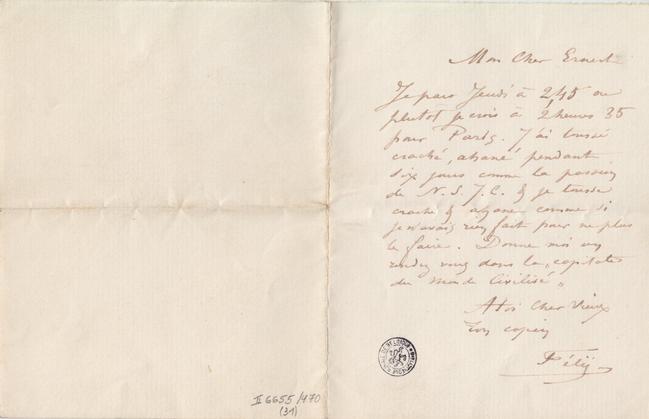 Mon Cher Ernest
Je pars Jeudi à 2,45 ou
plutot je crois à 2 heures 35
pour Paris. J'ai toussé
craché, ahané pendant
dix jours comme la passion
de N.S.J.C. & je tousse
crache & ahane comme si
je n'avais rien fait pour ne plus
le faire. Donne moi un
rendez vous dans la "capitale
du Monde Civilisé"
A toi cher Vieux
Ton copain
Fély
II 6655/470
(31)